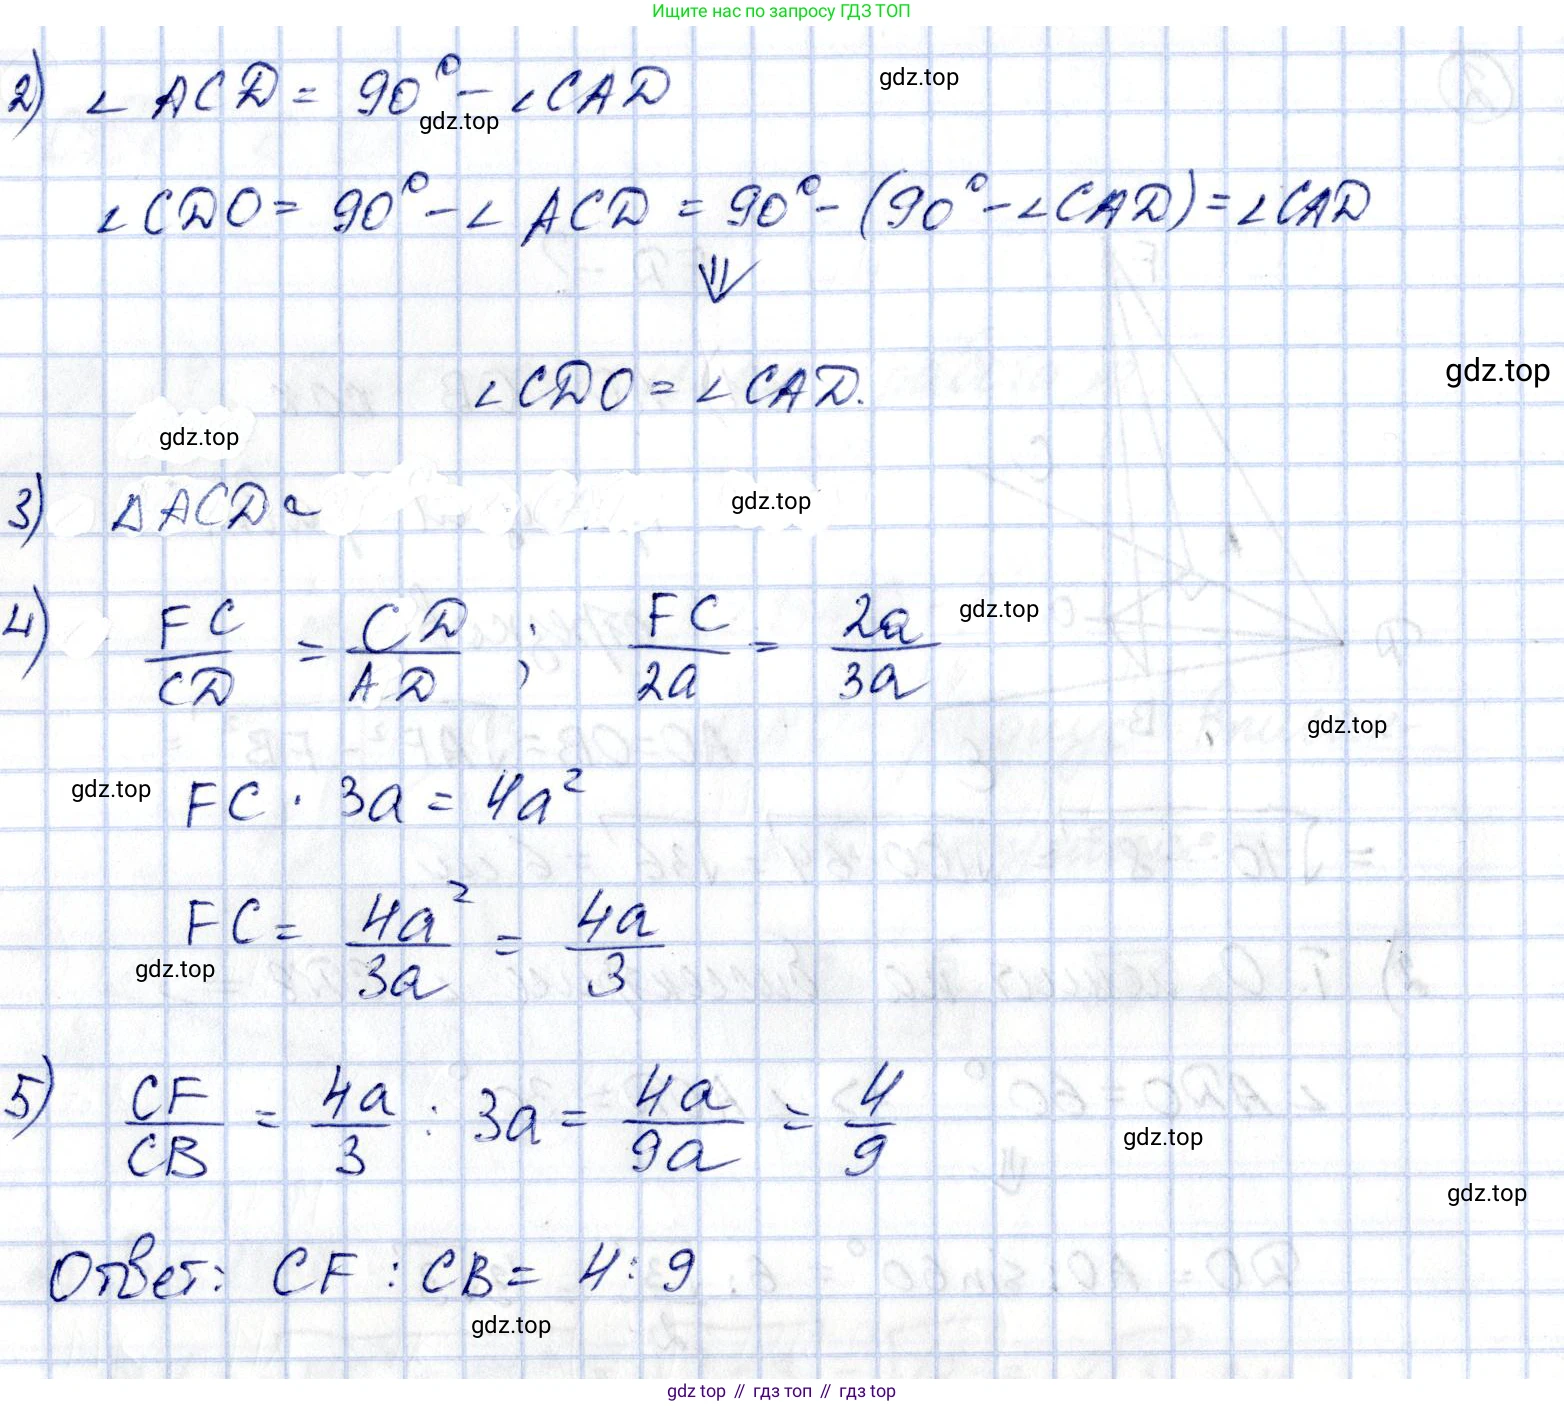 Ищите нас по запросу ГДЗ ТОП
2) ∠ACD = 90° - ∠CAD
gdz.top
gdz.top
∠CDO = 90° - ∠ACD = 90° - (90° - ∠CAD) = ∠CAD
⇓
∠CDO = ∠CAD.
gdz.top
gdz.top
3) ΔACD ~
gdz.top
4) FC/CD = CD/AD ; FC/2a = 2a/3a
gdz.top
gdz.top
FC · 3a = 4a²
gdz.top
FC = 4a²/3a = 4a/3
gdz.top
5) CF/CB = 4a/3 : 3a = 4a/9a = 4/9
gdz.top
gdz.top
Ответ: CF : CB = 4 : 9
gdz.top
gdz top // гдз топ // гдз top